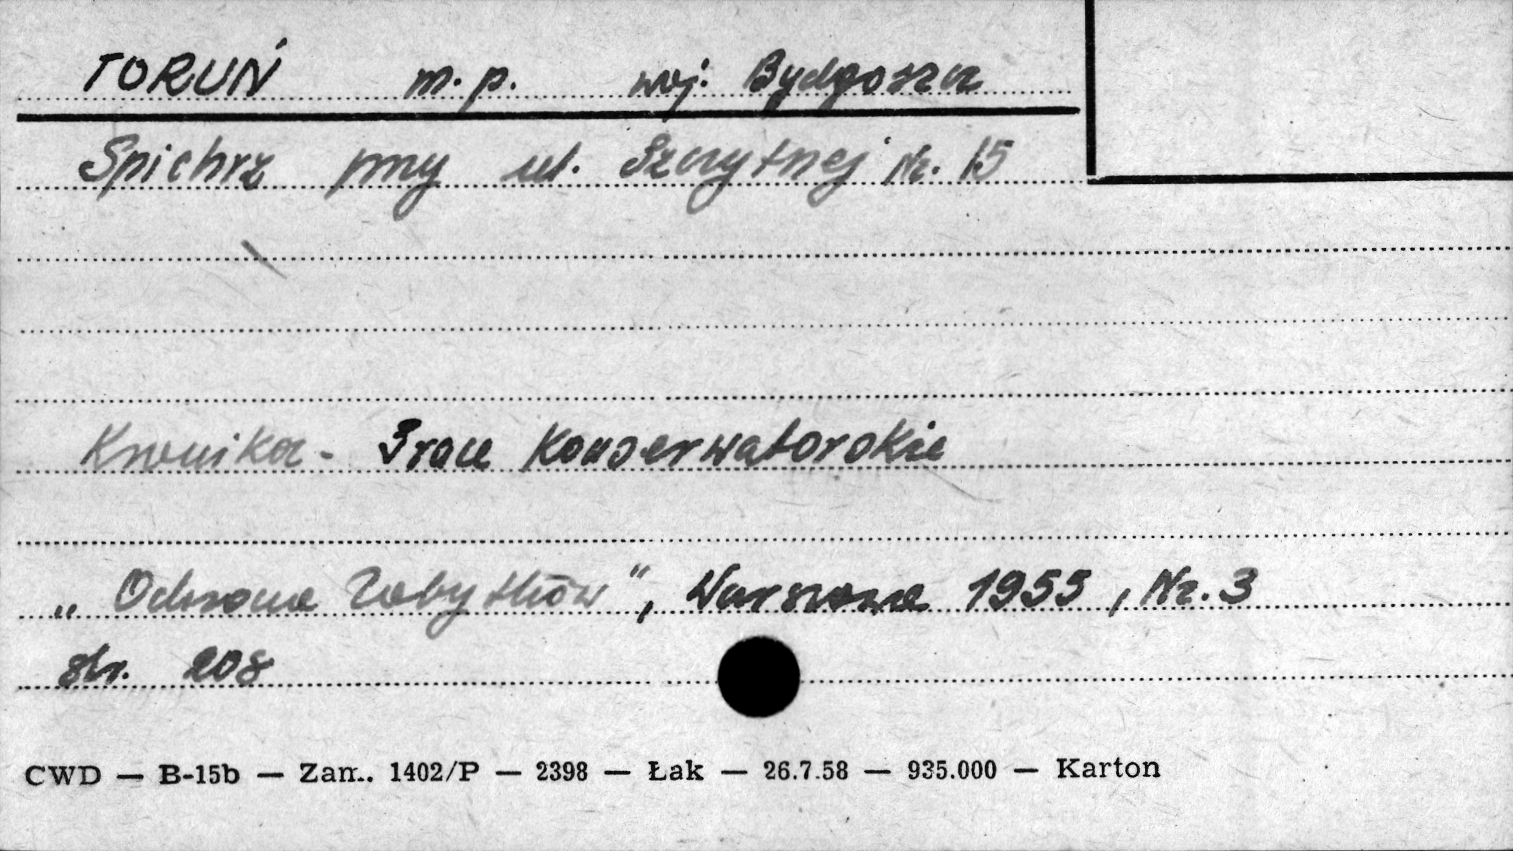 TORUŃ m.p. woj. Bydgoszcz
Spichrz przy ul. Szczytnej Nr. 15
Kronika - Prace Konserwatorskie
„Ochrona Zabytków”, Warszawa 1955, Nr. 3
str. 208
CWD — B-15b — Zam. 1402/P — 2398 — Łak — 26.7.58 — 935.000 — Karton